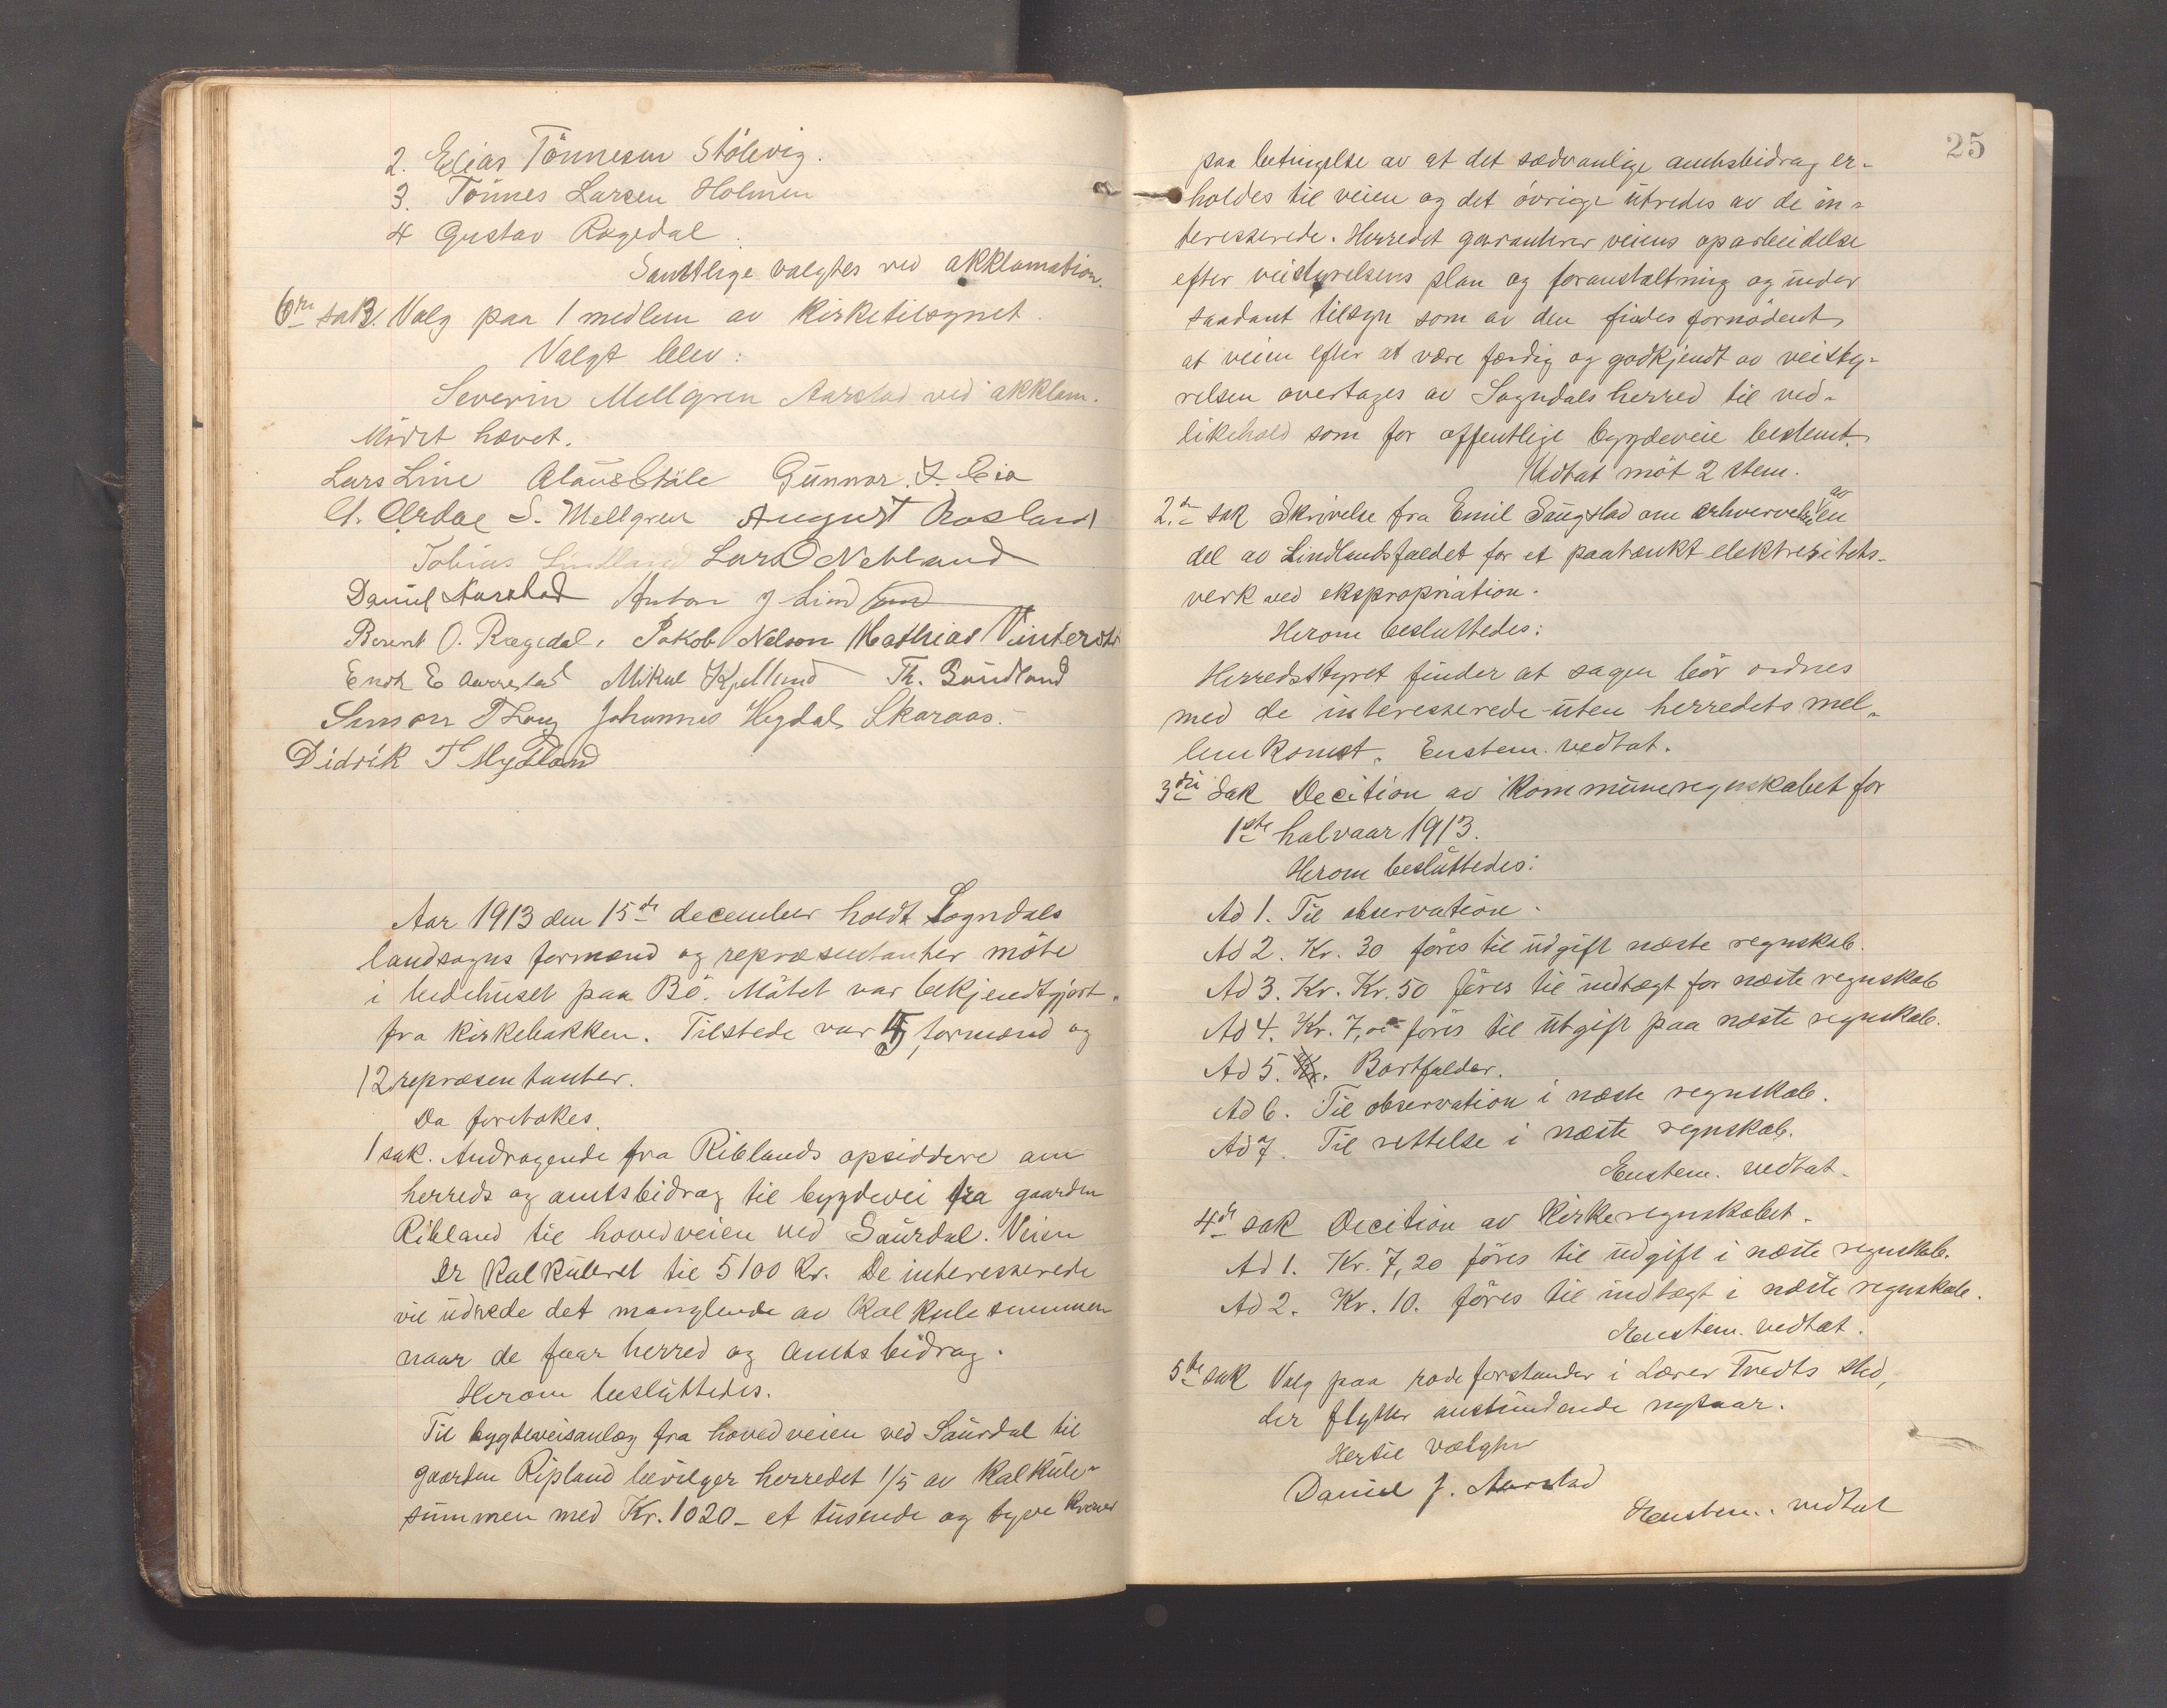 2. Elias Tönnesen Stölevig.
3. Tönnes Larsen Holmen
4 Gustav Rægedal.
Samtlige valgtes ved akklamation.
6te sak. Valg paa 1 medlem av kirketilsynet.
Valgt blev:
Severin Mellgren Aarstad ved akklam.
Mödet hævet.
Lars Line Olaus Ståle Gunnar T. Eia
S. Mellgren August Rosland
Tobias Lindland Lars O Nebland
Daniel Aarstad Anton J Lindland
Berent O. Rægedal, Jakob Nelson Mathias Vinterstø
Endr E Aarrestad Mikal Kjelland Th. Sundland
Simon Johannes Hegdal Skaraas.
Didrik T Mydland
Aar 1913 den 15de december holdt Sogndals
landsogns formænd og repræsentanter möte
i bedehuset paa Bö. Mötet var bekjendtgjort
fra kirkebakken. Tilstede var 5 formænd og
12 repræsentanter.
Da foretokes.
1 sak. Andragende fra Riblands opsiddere om
herreds og amtsbidrag til bygdevei fra gaarden
Ribland til hovedveien ved Saurdal. Veien
er kalkuleret til 5100 Kr. De interesserede
vil udrede det manglende av kalkulesummen
naar de faar herred og amtsbidrag.
Herom besluttedes.
Til bygdeveisanlæg fra hovedveien ved Saurdal til
gaarden Ripland bevilger herredet 1/5 av kalkule-
summen med Kr. 1020 - et tusende og tyve kroner
25
paa betingelse av at det sædvanlige amtsbidrag er-
holdes til veien og det övrige utredes av de in-
teresserede. Herredet garanterer veiens oparbeidelse
efter veistyrelsens plan og foranstaltning og under
saadant tilsyn som av den findes fornödent,
at veien efter at være færdig og godkjendt av veisty-
relsen overtages av Sogndals herred til ved-
likehold som for offentlige bygdeveie bestemt.
Vedtat möt 2 stem.
2.de sak Skrivelse fra Emil Saugstad om erhvervelse av en
del av Lindlandsfaldet for et paatænkt elektresitets-
verk ved ekspropriation.
Herom besluttedes:
Herredsstyret finder at sagen bör ordnes
med de interesserede uten herredets mel-
lemkomst. Enstem. vedtat.
3die Sak Decition av Kommuneregnskabet for
1ste halvaar 1913.
Herom besluttedes:
Ad 1. Til observation.
Ad 2. Kr. 30 föres til udgift næste regnskab.
Ad 3. Kr. Kr. 50 föres til indtægt for næste regnskab
Ad 4. Kr. 7,00 föres til utgift paa næste regnskab.
Ad 5. Kr. Bortfalder.
Ad 6. Til observation i næste regnskab.
Ad 7. Til rettelse i næste regnskab.
Enstem. vedtat.
4de sak Decition av Kirkeregnskabet.
Ad 1. Kr. 7,20 föres til udgift i næste regnskab.
Ad 2. Kr. 10. föres til indtægt i næste regnskab.
Enstem. vedtat.
5te sak Valg paa rodeforstander i Lærer Tvedts sted,
der flytter anstundende nytaar.
Hertil valgtes
Daniel J. Aarstad
Enstem. vedtat